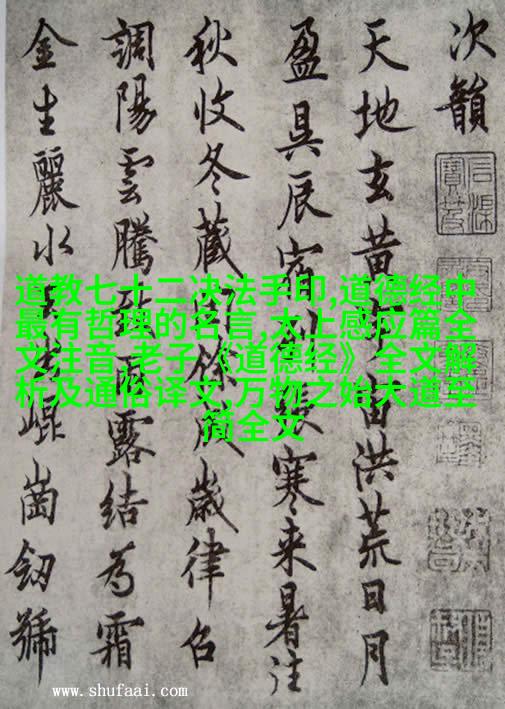 次韻
天地玄黄宙洪荒日月
盈昃辰宿寒来暑往
秋收冬藏餘成歳律召
調陽雲騰雨露結為霜
金生麗水崐崗劒號
道教七十二决法手印,道德经中
最有哲理的名言,太上感应篇全
文注音,老子《道德经》全文解
析及通俗译文,万物之始大道至
简全文
www.shufaai.com